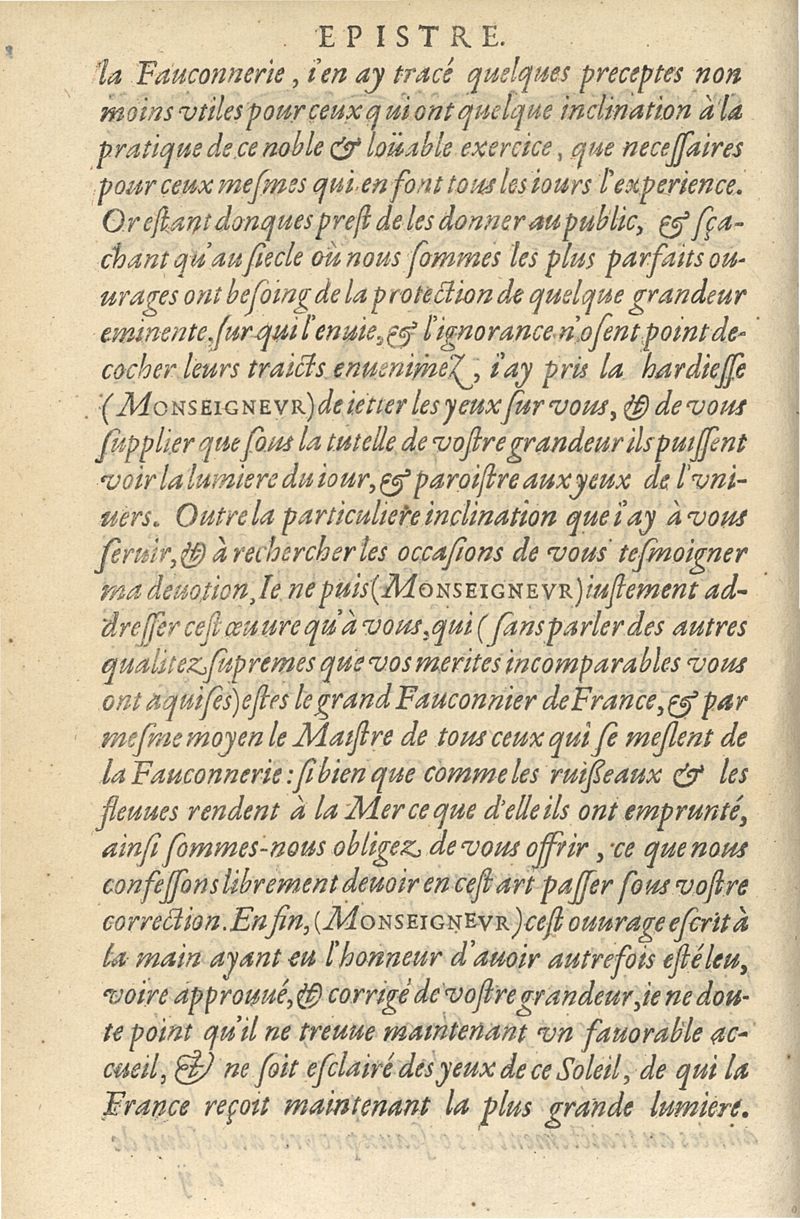 EPISTRE.
la Fauconnerie, i'en ay tracé quelques preceptes non
moins vtiles pour ceux qui ont quelque inclination à la
pratique de ce noble & loüable exercice, que neceſſaires
pour ceux meſmes qui en font tous les iours l'experience.
Or eſtant donques preſt de les donner au public, & ſça-
chant qu'au ſiecle où nous ſommes les plus parfaits ou-
urages ont beſoing de la protection de quelque grandeur
eminente, ſur qui l'enuie, & l'ignorance n'oſent point de-
cocher leurs traicts enuenimez, i'ay pris la hardieſſe
(MONSEIGNEVR) de ietter les yeux ſur vous, & de vous
ſupplier que ſous la tutelle de voſtre grandeur ils puiſſent
voir la lumiere du iour, & paroiſtre aux yeux de l'vni-
uers. Outre la particuliere inclination que i'ay à vous
ſeruir, & à rechercher les occaſions de vous teſmoigner
ma deuotion, Ie ne puis (MONSEIGNEVR) iuſtement ad-
dreſſer ceſt œuure qu'à vous, qui (ſans parler des autres
qualitez ſupremes que vos merites incomparables vous
ont aquiſes) eſtes le grand Fauconnier de France, & par
meſme moyen le Maiſtre de tous ceux qui ſe meſlent de
la Fauconnerie: ſi bien que comme les ruißeaux & les
fleuues rendent à la Mer ce que d'elle ils ont emprunté,
ainſi ſommes-nous obligez de vous offrir, ce que nous
confeſſons librement deuoir en ceſt art paſſer ſous voſtre
correction. En fin, (MONSEIGNEVR) ceſt ouurage eſcrit à
la main ayant eu l'honneur d'auoir autrefois eſté leu,
voire approuué, & corrigé de voſtre grandeur, ie ne dou-
te point qu'il ne treuue maintenant vn fauorable ac-
cueil, & ne ſoit eſclairé des yeux de ce Soleil, de qui la
France reçoit maintenant la plus grande lumiere.